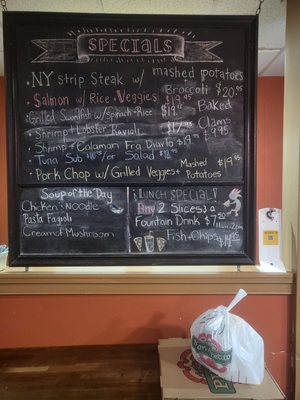 SPECIALS
• NY Strip Steak w/ mashed potatoes
Broccoli $20.95
• Salmon w/ Rice + Veggies $19.95
• Grilled Swordfish w/ Spinach + Rice $19.95 Baked
• Shrimp + Lobster Ravioli Clams
$9.95
• Shrimp + Calamari Fra Diavlo $19.95
• Tuna Sub or Salad
• Pork Chop w/ Grilled Veggies + Mashed Potatoes $19.95
Soup of the Day
Chicken Noodle
Pasta Fagioli
Cream of Mushroom
LUNCH SPECIAL!
Any 2 Slices + a
Fountain Drink $7.50
Fish + Chips $14.95